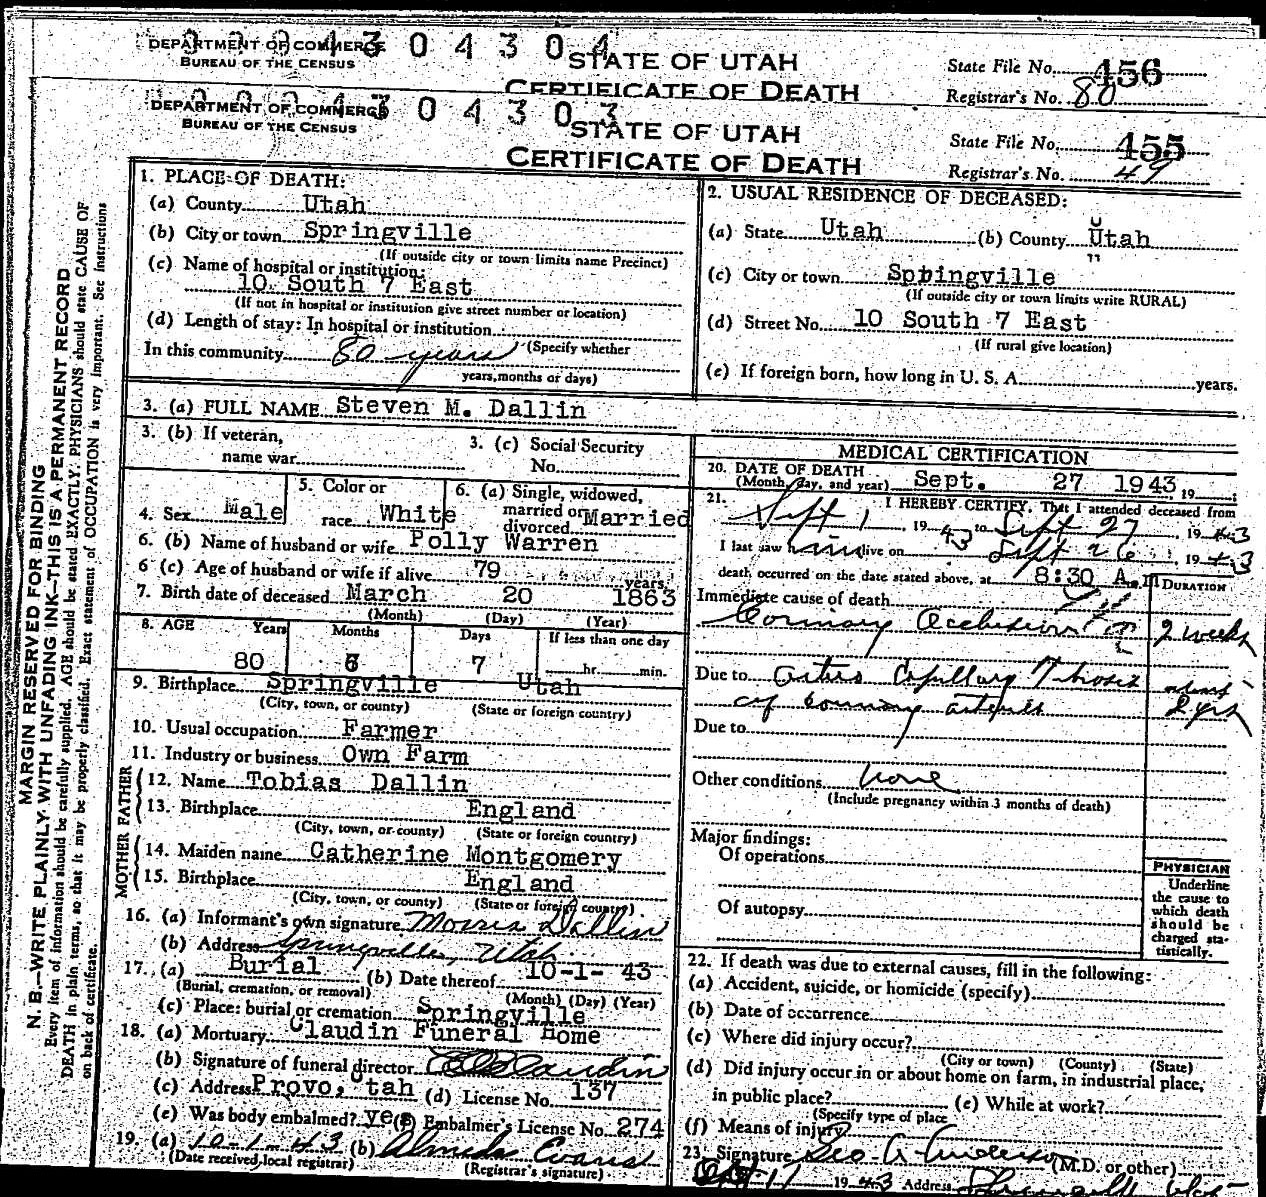 DEPARTMENT OF COMMERCE
BUREAU OF THE CENSUS
STATE OF UTAH
CERTIFICATE OF DEATH
State File No. 456
Registrar's No. 80
DEPARTMENT OF COMMERCE
BUREAU OF THE CENSUS
STATE OF UTAH
CERTIFICATE OF DEATH
State File No. 455
Registrar's No. 49
MARGIN RESERVED FOR BINDING
N. B.—WRITE PLAINLY WITH UNFADING INK—THIS IS A PERMANENT RECORD
Every item of information should be carefully supplied. AGE should be stated EXACTLY. PHYSICIANS should state CAUSE OF
DEATH in plain terms, so that it may be properly classified. Exact statement of OCCUPATION is very important. See instructions
on back of certificate.
1. PLACE OF DEATH:
(a) County Utah
(b) City or town Springville
(If outside city or town limits name Precinct)
(c) Name of hospital or institution:
10 South 7 East
(If not in hospital or institution give street number or location)
(d) Length of stay: In hospital or institution
(Specify whether
In this community 80 years
years, months or days)
2. USUAL RESIDENCE OF DECEASED:
(a) State Utah (b) County Utah
(c) City or town Springville
(If outside city or town limits write RURAL)
(d) Street No. 10 South 7 East
(If rural give location)
(e) If foreign born, how long in U. S. A. years.
3. (a) FULL NAME Steven M. Dallin
3. (b) If veteran,
name war
3. (c) Social Security
No.
4. Sex Male
5. Color or
race White
6. (a) Single, widowed,
married or
divorced Married
6. (b) Name of husband or wife Polly Warren
6 (c) Age of husband or wife if alive 79 years
7. Birth date of deceased March 20 1863
(Month) (Day) (Year)
8. AGE Years Months Days If less than one day
80 6 7 hr. min.
9. Birthplace Springville Utah
(City, town, or county) (State or foreign country)
10. Usual occupation Farmer
11. Industry or business Own Farm
FATHER
12. Name Tobias Dallin
13. Birthplace England
(City, town, or county) (State or foreign country)
MOTHER
14. Maiden name Catherine Montgomery
15. Birthplace England
(City, town, or county) (State or foreign country)
16. (a) Informant's own signature Dallin
(b) Address Springville, Utah
17. (a) Burial (b) Date thereof 10-1-43
(Burial, cremation, or removal) (Month) (Day) (Year)
(c) Place: burial or cremation Springville
18. (a) Mortuary Claudin Funeral Home
(b) Signature of funeral director Claudin
(c) Address Provo, Utah (d) License No. 137
(e) Was body embalmed? yes (f) Embalmer's License No. 274
19. (a) 10-1-43 (b) Almeda Evans
(Date received local registrar) (Registrar's signature)
MEDICAL CERTIFICATION
20. DATE OF DEATH
(Month, day, and year) Sept. 27 1943, 19 ;
21. I HEREBY CERTIFY, That I attended deceased from
Sept 1, 1943 to Sept 27, 1943
I last saw him alive on Sept 26, 1943
death occurred on the date stated above, at 8:30 A. m
DURATION
Immediate cause of death
Coronary Occlusion 2 weeks
Due to
of coronary 2 yrs
Due to
Other conditions none
(Include pregnancy within 3 months of death)
Major findings:
Of operations
Of autopsy
PHYSICIAN
Underline
the cause to
which death
should be
charged sta-
tistically.
22. If death was due to external causes, fill in the following:
(a) Accident, suicide, or homicide (specify)
(b) Date of occurrence
(c) Where did injury occur?
(City or town) (County) (State)
(d) Did injury occur in or about home on farm, in industrial place,
in public place? (e) While at work?
(Specify type of place
(f) Means of injury
23. Signature Geo. A. Anderson (M.D. or other)
1943 Address